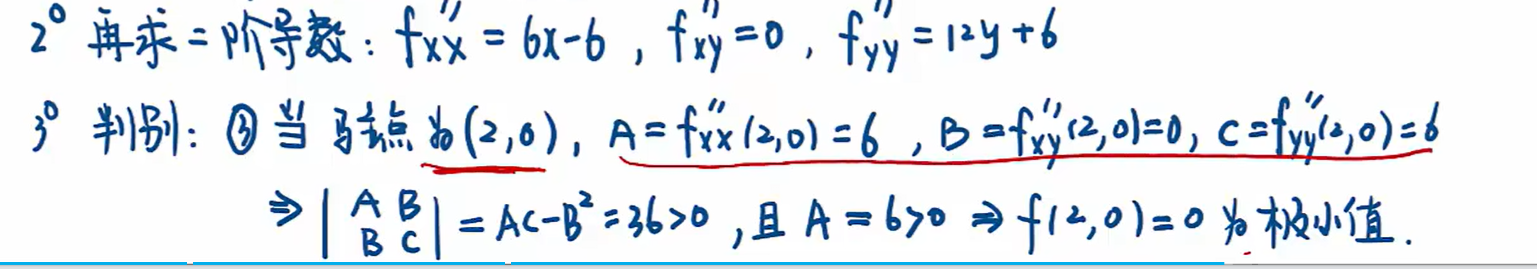 2° 再求二阶导数: f''xx = 6x-6 , f''xy = 0 , f''yy = 12y+6
3° 判别: ③ 当 驻点 为 (2,0), A = f''xx (2,0) = 6 , B = f''xy (2,0) = 0, C = f''yy (2,0) = 6
⇒ | A B
B C | = AC-B² = 36>0 , 且 A = 6>0 ⇒ f(2,0) = 0 为 极小值.